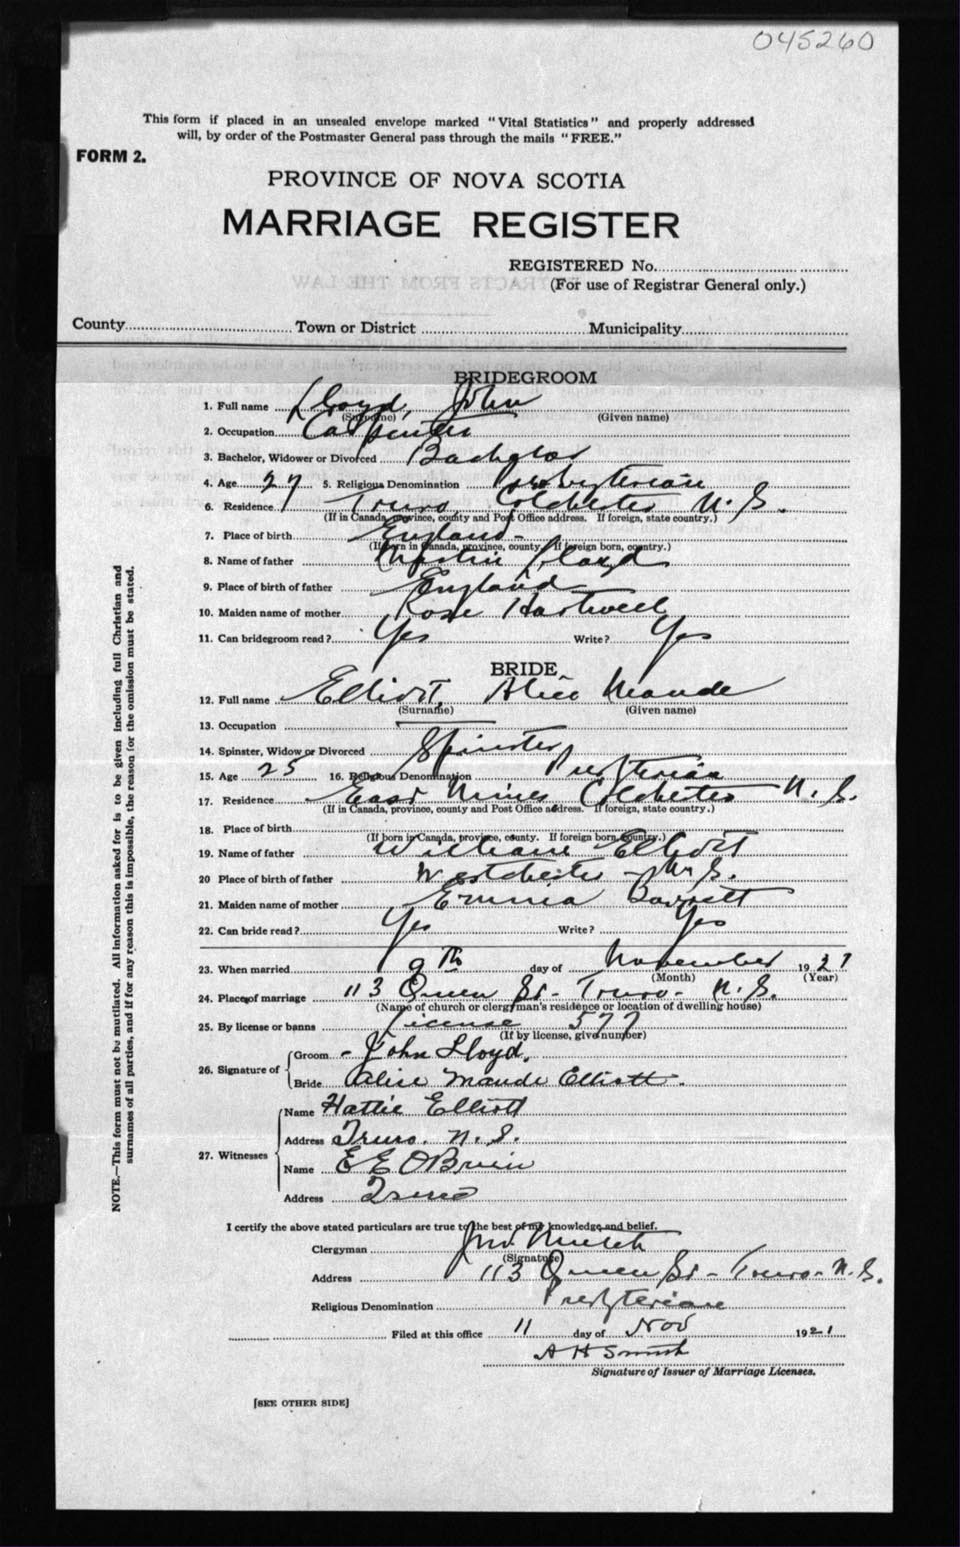 045260
This form if placed in an unsealed envelope marked "Vital Statistics" and properly addressed
will, by order of the Postmaster General pass through the mails "FREE."
FORM 2.
PROVINCE OF NOVA SCOTIA
MARRIAGE REGISTER
REGISTERED No.
(For use of Registrar General only.)
County Town or District Municipality
BRIDEGROOM
1. Full name Lloyd, John
(Surname) (Given name)
2. Occupation Carpenter
3. Bachelor, Widower or Divorced Bachelor
4. Age 27 5. Religious Denomination Presbyterian
6. Residence Truro Colchester N.S.
(If in Canada, province, county and Post Office address. If foreign, state country.)
7. Place of birth England
(If born in Canada, province, county. If foreign born, country.)
8. Name of father Lloyd
9. Place of birth of father England
10. Maiden name of mother Rose Hartwell
11. Can bridegroom read? Yes Write? Yes
BRIDE
12. Full name Elliott, Alice Maude
(Surname) (Given name)
13. Occupation
14. Spinster, Widow or Divorced Spinster
15. Age 25 16. Religious Denomination Presbyterian
17. Residence East Mines Colchester N.S.
(If in Canada, province, county and Post Office address. If foreign, state country.)
18. Place of birth
(If born in Canada, province, county. If foreign born, country.)
19. Name of father William Elliott
20 Place of birth of father Westchester N.S.
21. Maiden name of mother Emma Barrett
22. Can bride read? Yes Write? Yes
23. When married 9th day of November 1921
(Month) (Year)
24. Place of marriage 113 Queen St- Truro- N.S.
(Name of church or clergyman's residence or location of dwelling house)
25. By license or banns License 577
(If by license, give number)
26. Signature of
Groom John Lloyd.
Bride Alice Maude Elliott.
27. Witnesses
Name Hattie Elliott
Address Truro. N.S.
Name E E O'Brien
Address Truro
I certify the above stated particulars are true to the best of my knowledge and belief.
Clergyman Jno
(Signature)
Address 113 Queen St- Truro- N.S.
Religious Denomination Presbyterian
Filed at this office 11 day of Nov 1921
A H Smith
Signature of Issuer of Marriage Licenses.
[SEE OTHER SIDE]
NOTE.—This form must not be mutilated. All information asked for is to be given including full Christian and
surnames of all parties, and if for any reason this is impossible, the reason for the omission must be stated.